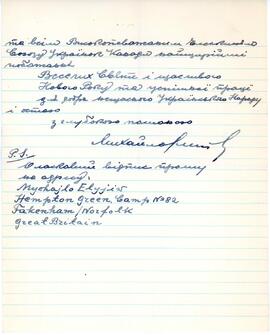 та всім Високоповажаним Членкиням
Союзу Українок Канади найщиріші
побажання
Веселих Свят і щасливого
Нового Року та успішної праці
для добра нещасного Українського Народу
і
з глибокою пошаною
Михайло
P.S.
Ласкавий відпис прошу
на адресу:
Mychajlo
Hempton Green, Camp No 82
Fakenham/Norfolk
Great Britain